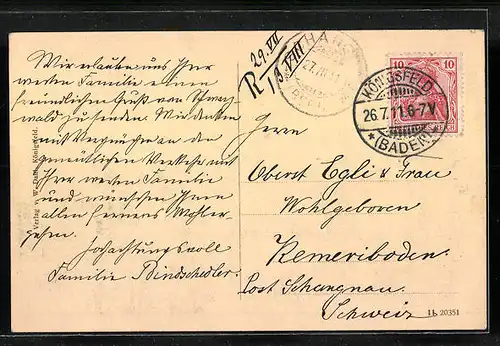 Wir erlauben uns Ihrer
werten Familie einen
freundlichen Gruß vom Schwarz-
wald zu senden. Wir denken
mit Vergnügen an den
gemütlichen Verkehr mit
Ihrer werten Familie
und wünschen Ihnen
allen ferneres Wohler-
gehen.
Hochachtungsvoll
Familie Bindschedler.
Verlag v. W. Dahl, Königsfeld.
R 29.VII
1.3 VIII
10 10
KÖNIGSFELD
26.7.11.6-7V
*(BADEN)
Herrn
Oberst Egli & Frau
Wohlgeboren
Kemeriboden.
Post Schangnau
Schweiz
Ib. 20351